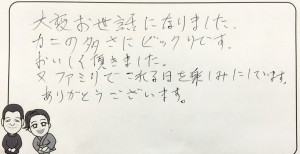 大変お世話になりました。
カニの多さにビックリです。
おいしく頂きました。
又ファミリーでこれる日を楽しみにしています。
ありがとうございます。